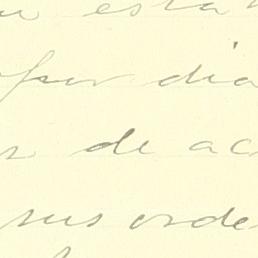 esta
por dia
de ac
sus orde